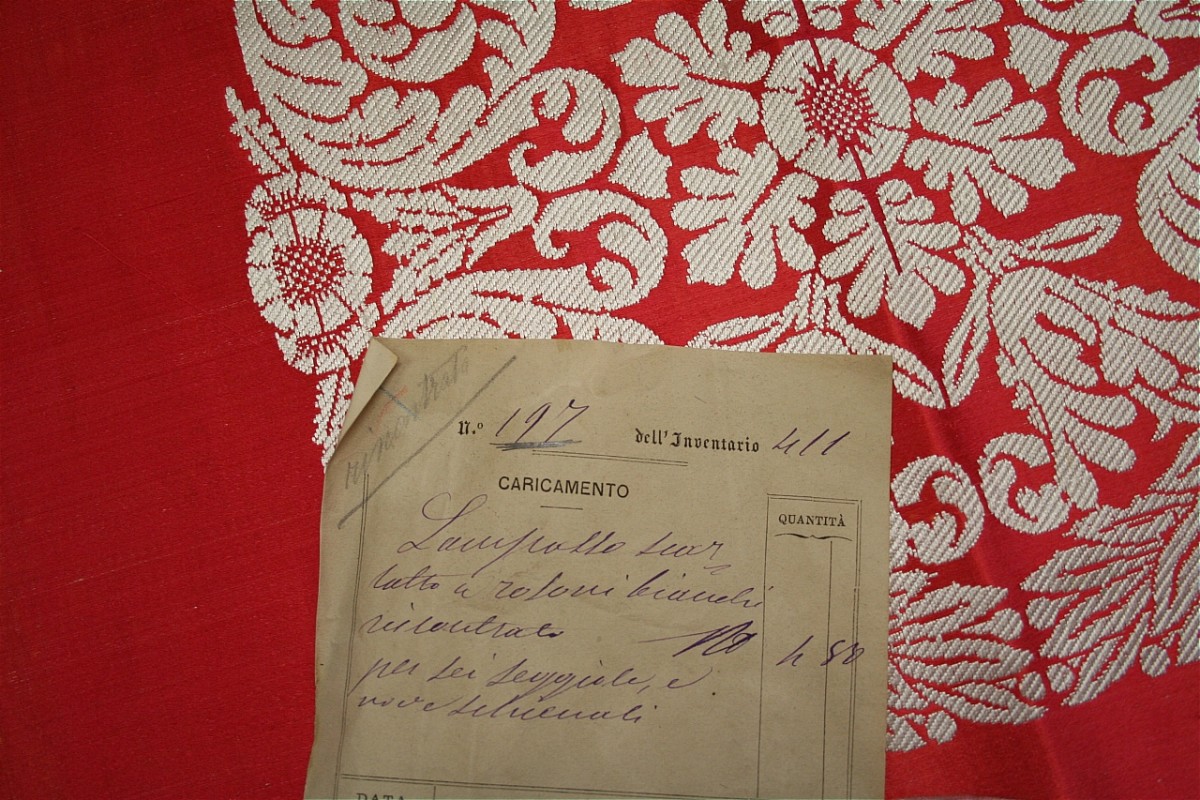 rincontrato
N.º 197 dell'Inventario 411
CARICAMENTO
QUANTITÀ
Lampasso scar
latto a rosoni bianchi
rincontrato
per sei seggiole, e
nove schienali
DATA